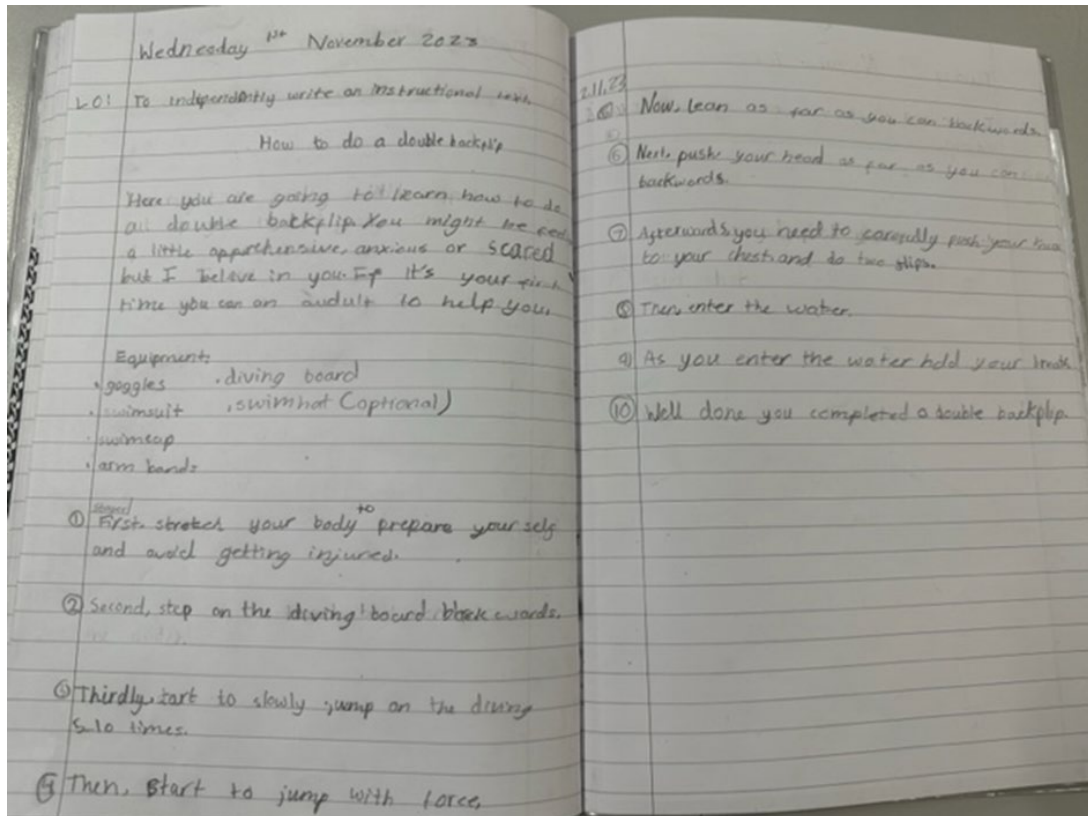 Wednesday 1st November 2023
LO: To independently write an instructional
How to do a double backflip
Here you are going to learn how to do
a double backflip. You might be
a little apprehensive, anxious or scared
but I believe in you. If it's your first
time you can an audult to help you.
Equipment:
• goggles • diving board
• swimsuit • swimhat (optional)
• swimcap
• arm bands
① First, stretch your body to prepare your self
and avoid getting injured.
② Second, step on the diving board backwards.
③ Thirdly, tart to slowly jump on the diving
5-10 times.
④ Then, start to jump with force,
2.11.23
⑤ Now, lean as far as you can backwards.
⑥ Next, push your head as far as you can
backwards.
⑦ Afterwards you need to carefully push your
to your chest and do two flips.
⑧ Then, enter the water.
9) As you enter the water hold your breath
⑩ Well done you completed a double backflip.